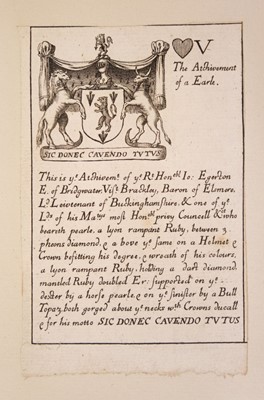 V
The Atchivement
of a Earle.
SIC DONEC CAVENDO TVTVS
This is yᵉ Atchivemᵗ of yᵉ Rᵗ Honᵇˡ Io: Egerton
E. of Bridgwater, Visᵗ Brackley, Baron of Elsmere,
Lᵈ Lievtenant of Buckinghamshire, & one of yᵉ
Lᵈˢ of his Maᵗʸˢ most Honᵇˡ privy Councell & who
beareth pearle, a lyon rampant Ruby, between 3
pheons diamond, & a bove yᵉ same on a Helmet &
Crown befitting his degree, & wreath of his colours,
a lyon rampant Ruby, holding a dart diamond
mantled Ruby doubled Er: supported on yᵉ
dexter by a horse pearle, & on yᵉ sinister by a Bull
Topaz, both gorged about yᵉ necks wᵗʰ Crowns ducall
& for his motto SIC DONEC CAVENDO TVTVS